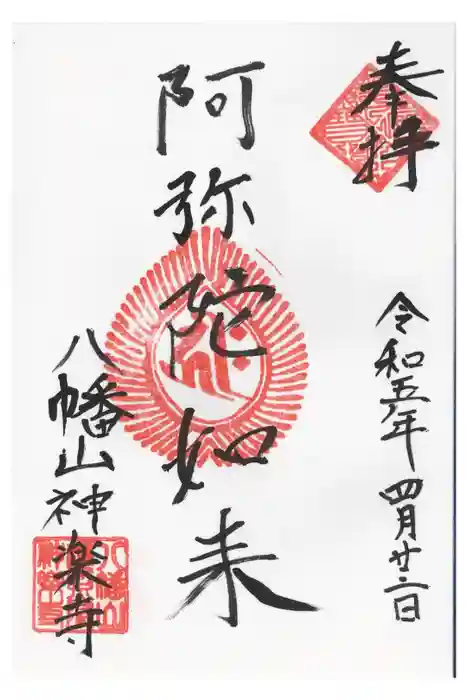 奉拝
令和五年四月廿二日
阿弥陀如来
八幡山神楽寺